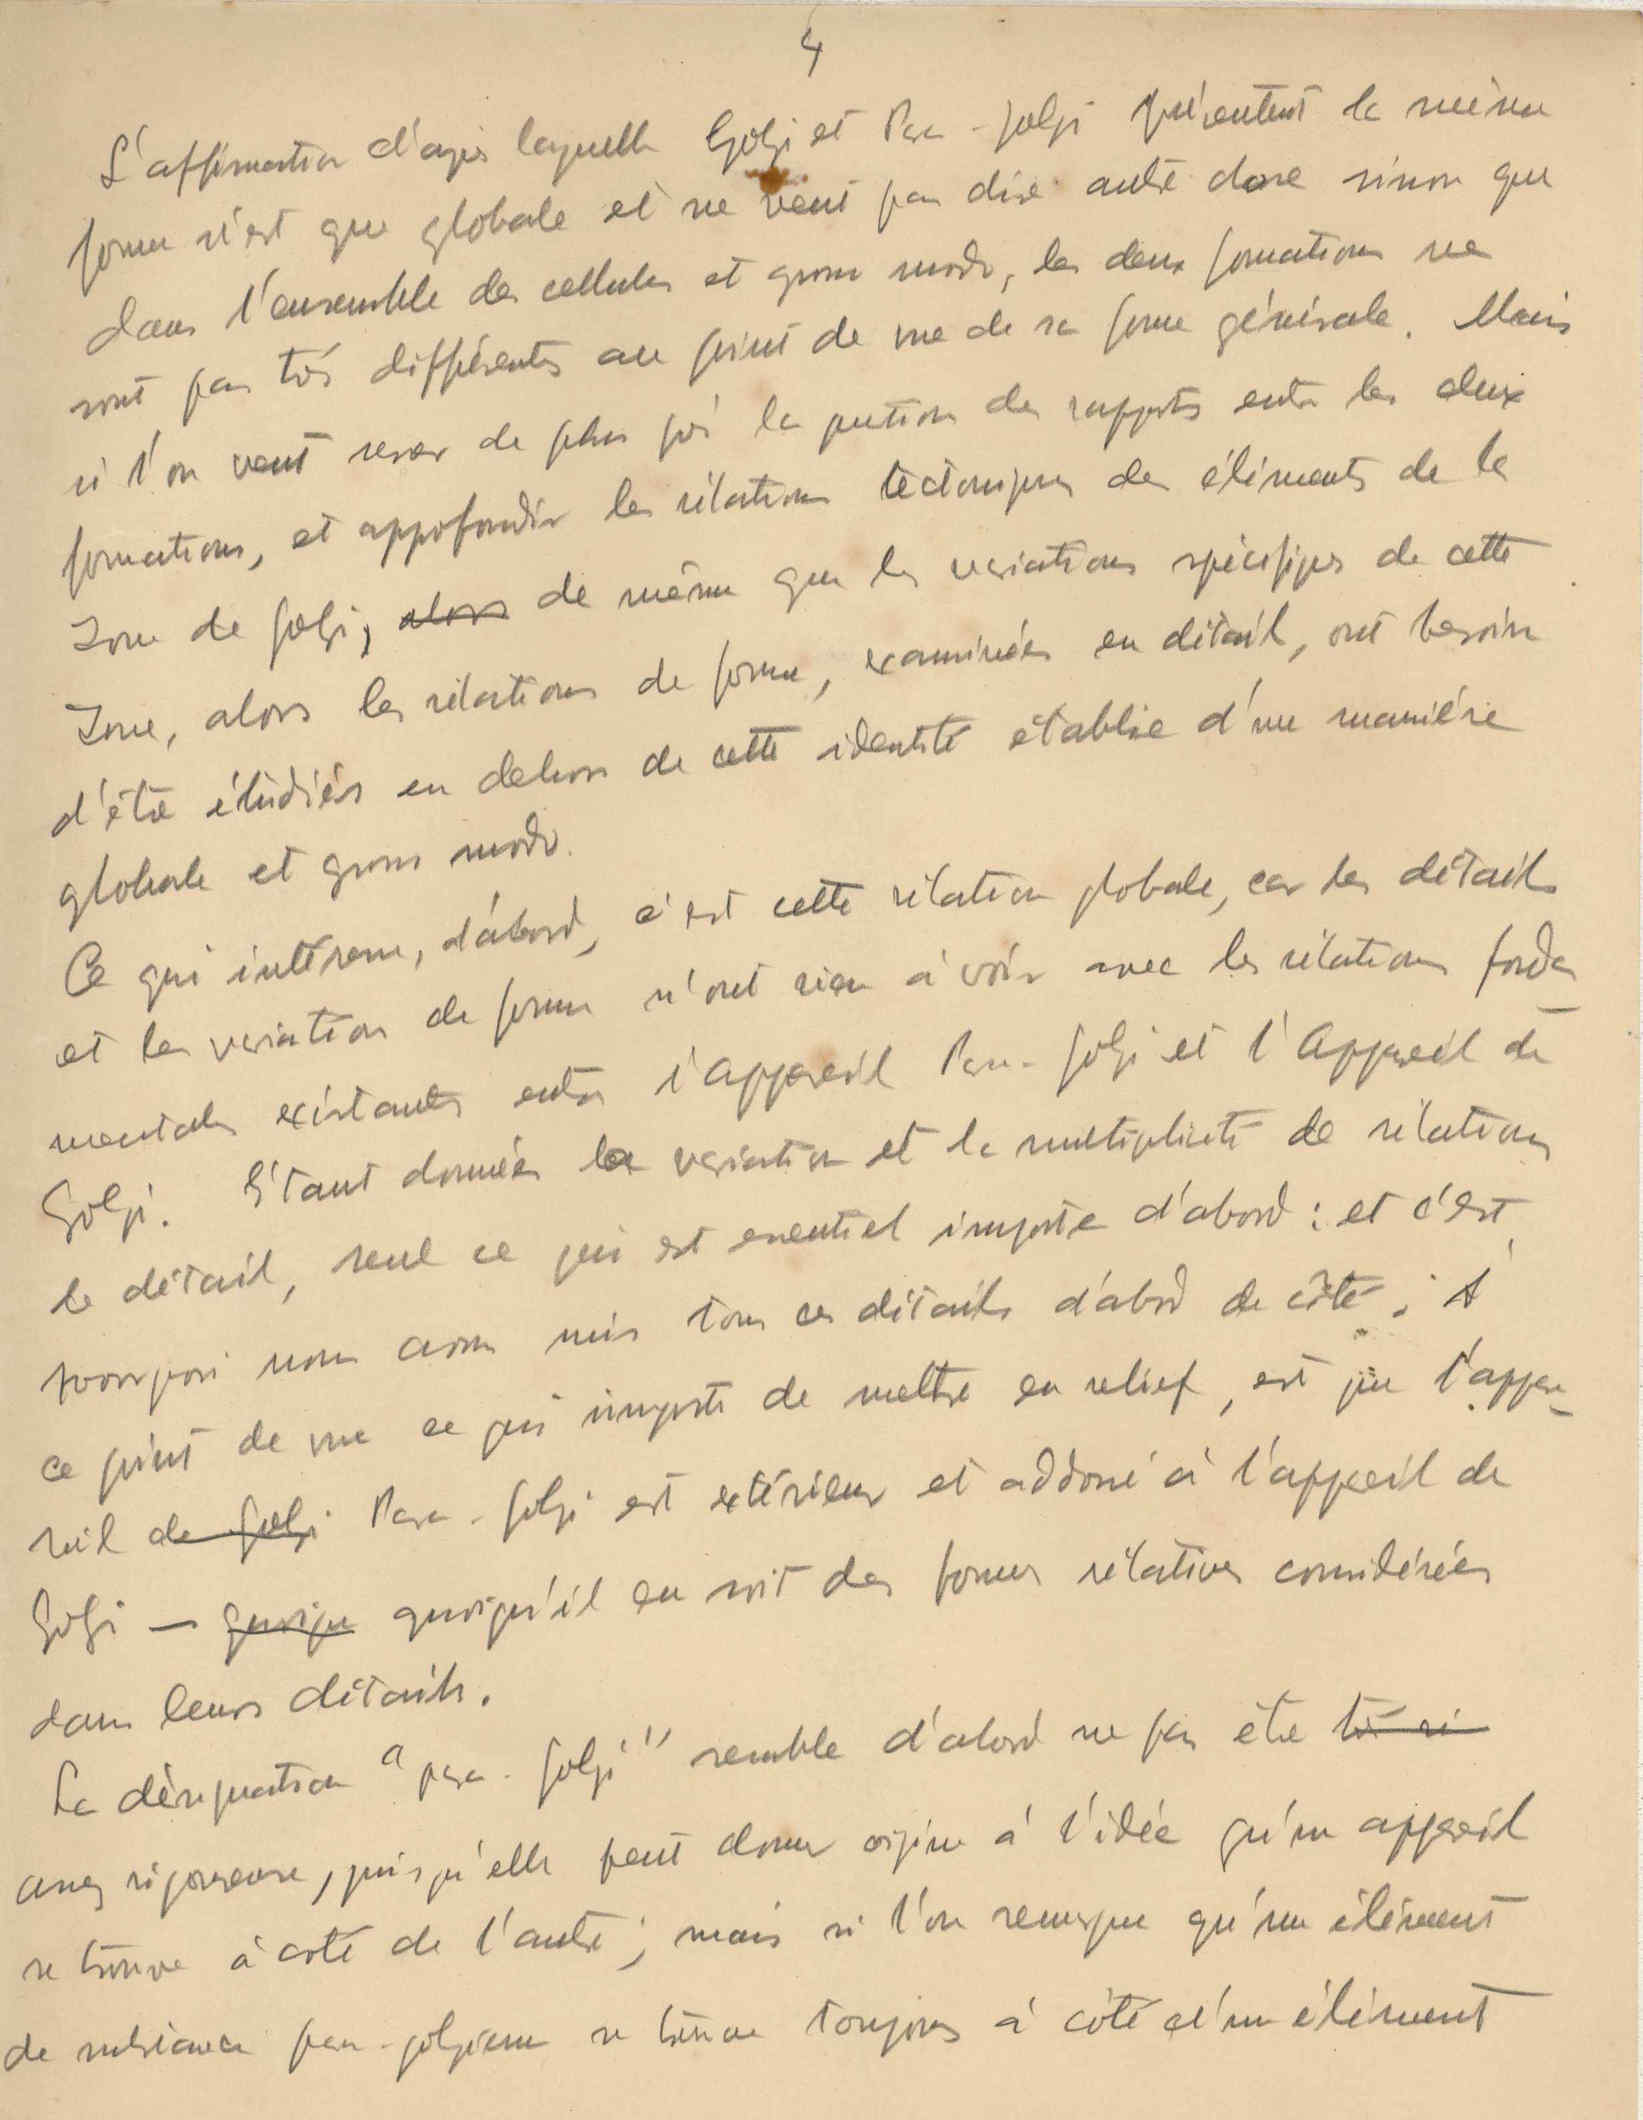 4
L'affirmation d'après laquelle Golgi et Para-Golgi présentent la même
forme n'est que globale et ne veut pas dire autre chose sinon que
dans l'ensemble des cellules et grosso modo, les deux formations ne
sont pas très différentes au point de vue de sa forme générale. Mais
si l'on veut serrer de plus près la question des rapports entre les deux
formations, et approfondir les rélations tectoniques des éléments de la
zone de Golgi, alors de même que les variations spécifiques de cette
zone, alors les rélations de forme, examinées en détail, ont besoin
d'être étudiées en dehors de cette identité établie d'une manière
globale et grosso modo.
Ce qui intéresse, d'abord, c'est cette rélation globale, car les détails
et les variation de forme n'ont rien à voir avec les rélations fonda-
mentales existantes entre l'appareil Para-Golgi et l'Appareil de
Golgi. Étant données la variation et la multiplicité de rélations
le détail, seul ce qui est essentiel importe d'abord : et c'est
pourquoi nous avons mis tous ces détails d'abord de côté ; A
ce point de vue ce qui importe de mettre en relief, est que l'appa-
reil de Golgi Para-Golgi est extérieur et addossé à l'appareil de
Golgi — quoique quoiqu'il en soit des formes rélatives considérées
dans leurs détails.
La désignation "para-Golgi" semble d'abord ne pas être très ri
assez rigoureuse, puisqu'elle peut donner origine à l'idée qu'un appareil
se trouve à coté de l'autre ; mais si l'on remarque qu'un élément
de substance para-golgienne se trouve toujours à côté d'un élément